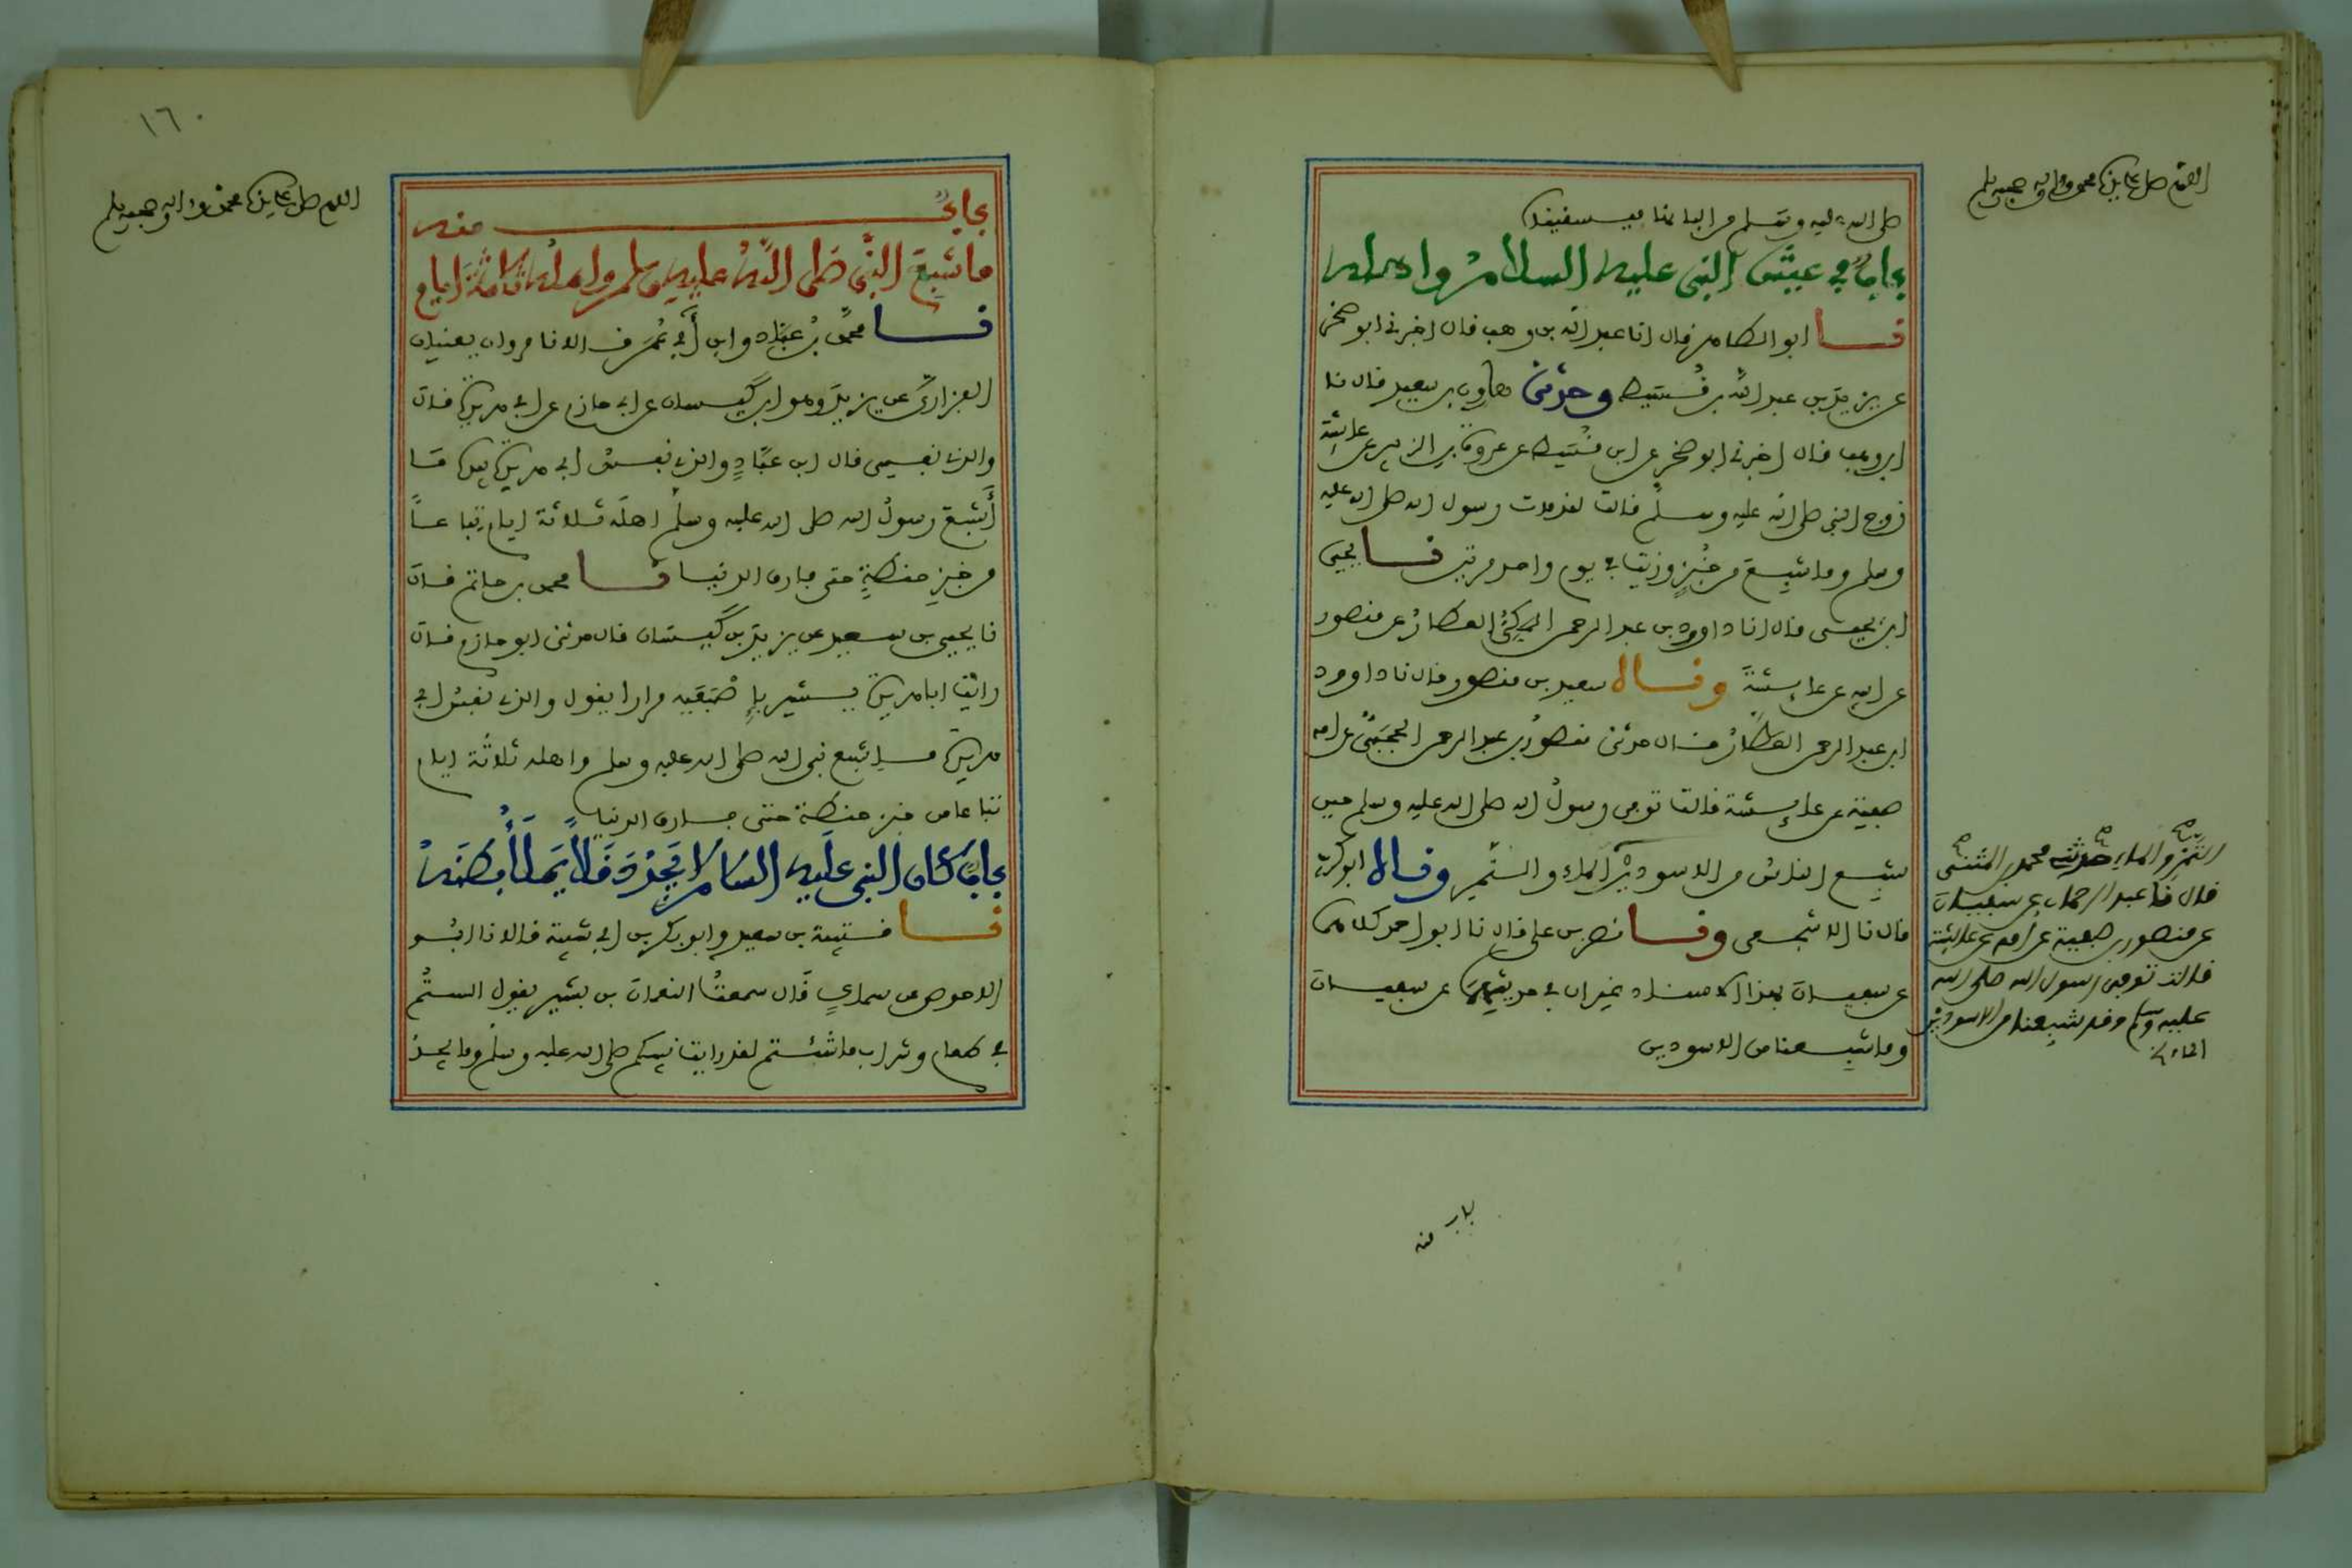 اللهم صل على سيدنا محمد وآله وصحبه وسلم
صلى الله عليه وسلم من البابنا
باب في عيش النبي عليه السلام واهله
نا ابو الطاهر قال انا عبد الله بن وهب قال اخبرني ابو صخر
عن يزيد بن عبد الله بن قسيط وحدثني هارون بن سعيد قال نا
ابن وهب قال اخبرني ابو صخر عن ابن قسيط عن عروة بن الزبير عن عائشة
زوج النبي صلى الله عليه وسلم قالت لقد مات رسول الله صلى الله عليه
وسلم وما شبع من خبز وزيت في يوم واحد مرتين نا يحيى
ابن يحيى قال انا داوود بن عبد الرحمن المكي العطار عن منصور
عن امه عن عائشة وقال سعيد بن منصور قال نا داوود
ابن عبد الرحمن العطار قال حدثني منصور بن عبد الرحمن الحجبي عن امه
صفية عن عائشة قالت توفي رسول الله صلى الله عليه وسلم حين
شبع الناس من الاسودين الماء والتمر وقال ابو كريب
قال نا الاشجعي ونا نصر بن علي قال نا ابو احمد كلاهما
عن سفيان بهذا الاسناد غير ان في حديثهما عن سفيان
وما شبعنا من الاسودين
التمر والماء حدثني محمد بن المثنى
قال نا عبد الرحمان عن سفيان
عن منصور بن صفية عن امه عن عائشة
قالت توفي رسول الله صلى الله
عليه وسلم وقد شبعنا من الاسودين
الماء
باب منه
١٦٠
اللهم صل على سيدنا محمد وآله وصحبه وسلم
باب منه
ما شبع النبي صلى الله عليه وسلم واهله ثلاثة ايام
نا محمد بن عباد وابن ابي عمر قالا نا مروان يعنيان
الفزاري عن يزيد وهو ابن كيسان عن ابي حازم عن ابي هريرة قال
والذي نفسي قال ابن عباد والذي نفس ابي هريرة بيده ما
اشبع رسول الله صلى الله عليه وسلم اهله ثلاثة ايام تباعا
من خبز حنطة حتى فارق الدنيا نا محمد بن حاتم قال
نا يحيى بن سعيد عن يزيد بن كيسان قال حدثني ابو حازم قال
رايت ابا هريرة يشير باصبعيه مرارا يقول والذي نفس ابي
هريرة ما شبع نبي الله صلى الله عليه وسلم واهله ثلاثة ايام
تباعا من خبز حنطة حتى فارق الدنيا
باب كان النبي عليه السلام لا يجد دقلا يملأ بطنه
نا قتيبة بن سعيد وابو بكر بن ابي شيبة قالا نا ابو
الاحوص عن سماك قال سمعت النعمان بن بشير يقول الستم
في طعام وشراب ما شئتم لقد رايت نبيكم صلى الله عليه وسلم وما يجد